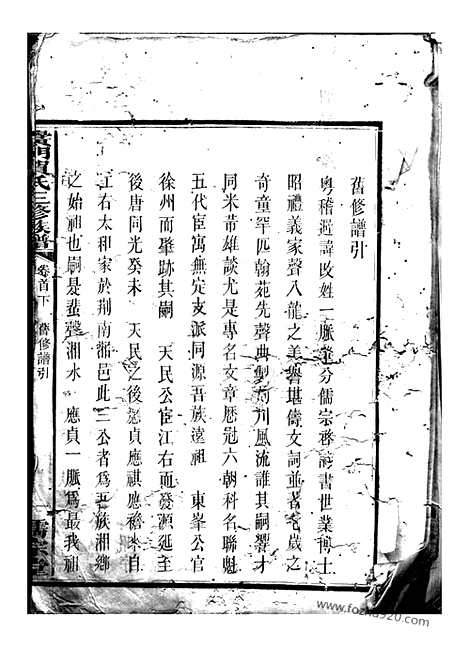 舊修譜引
粵稽避諱改姓一脈業分儒宗啓詩書世業博士
昭禮義家聲八龍之美譽堪儔文詞並著七歲之
奇童罕匹翰苑先聲典型均州風流誰其嗣響才
同米芾雄談尤是專名文章歷冠六朝科名聯魁
五代宦寓無定支派同源吾族遠祖 東峯公官
徐州而肇跡其嗣 天民公宦江右而發源延至
後唐同光癸未 天民之後應貞應祺應 來自
江右太和家於荆南 邑此三公者爲吾族湘鄉
之始祖也嗣是蜚聲湘水 應貞一脈爲最我祖
氏三修族譜 卷首下 舊修譜引
堂
www.fozhu920.com